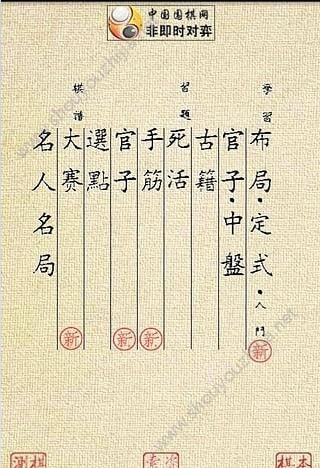 中国围棋网
非即时对弈
學習
布局·定式·入門
新
官子·中盤
習題
古籍
死活
手筋
新
官子
新
選點
棋譜
大賽
新
名人名局
棋本
測棋